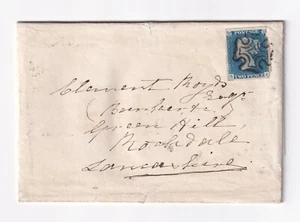 POSTAGE
TWO PENCE
Clement Royds
Esqr
Green Hill
Rochdale
Lancashire